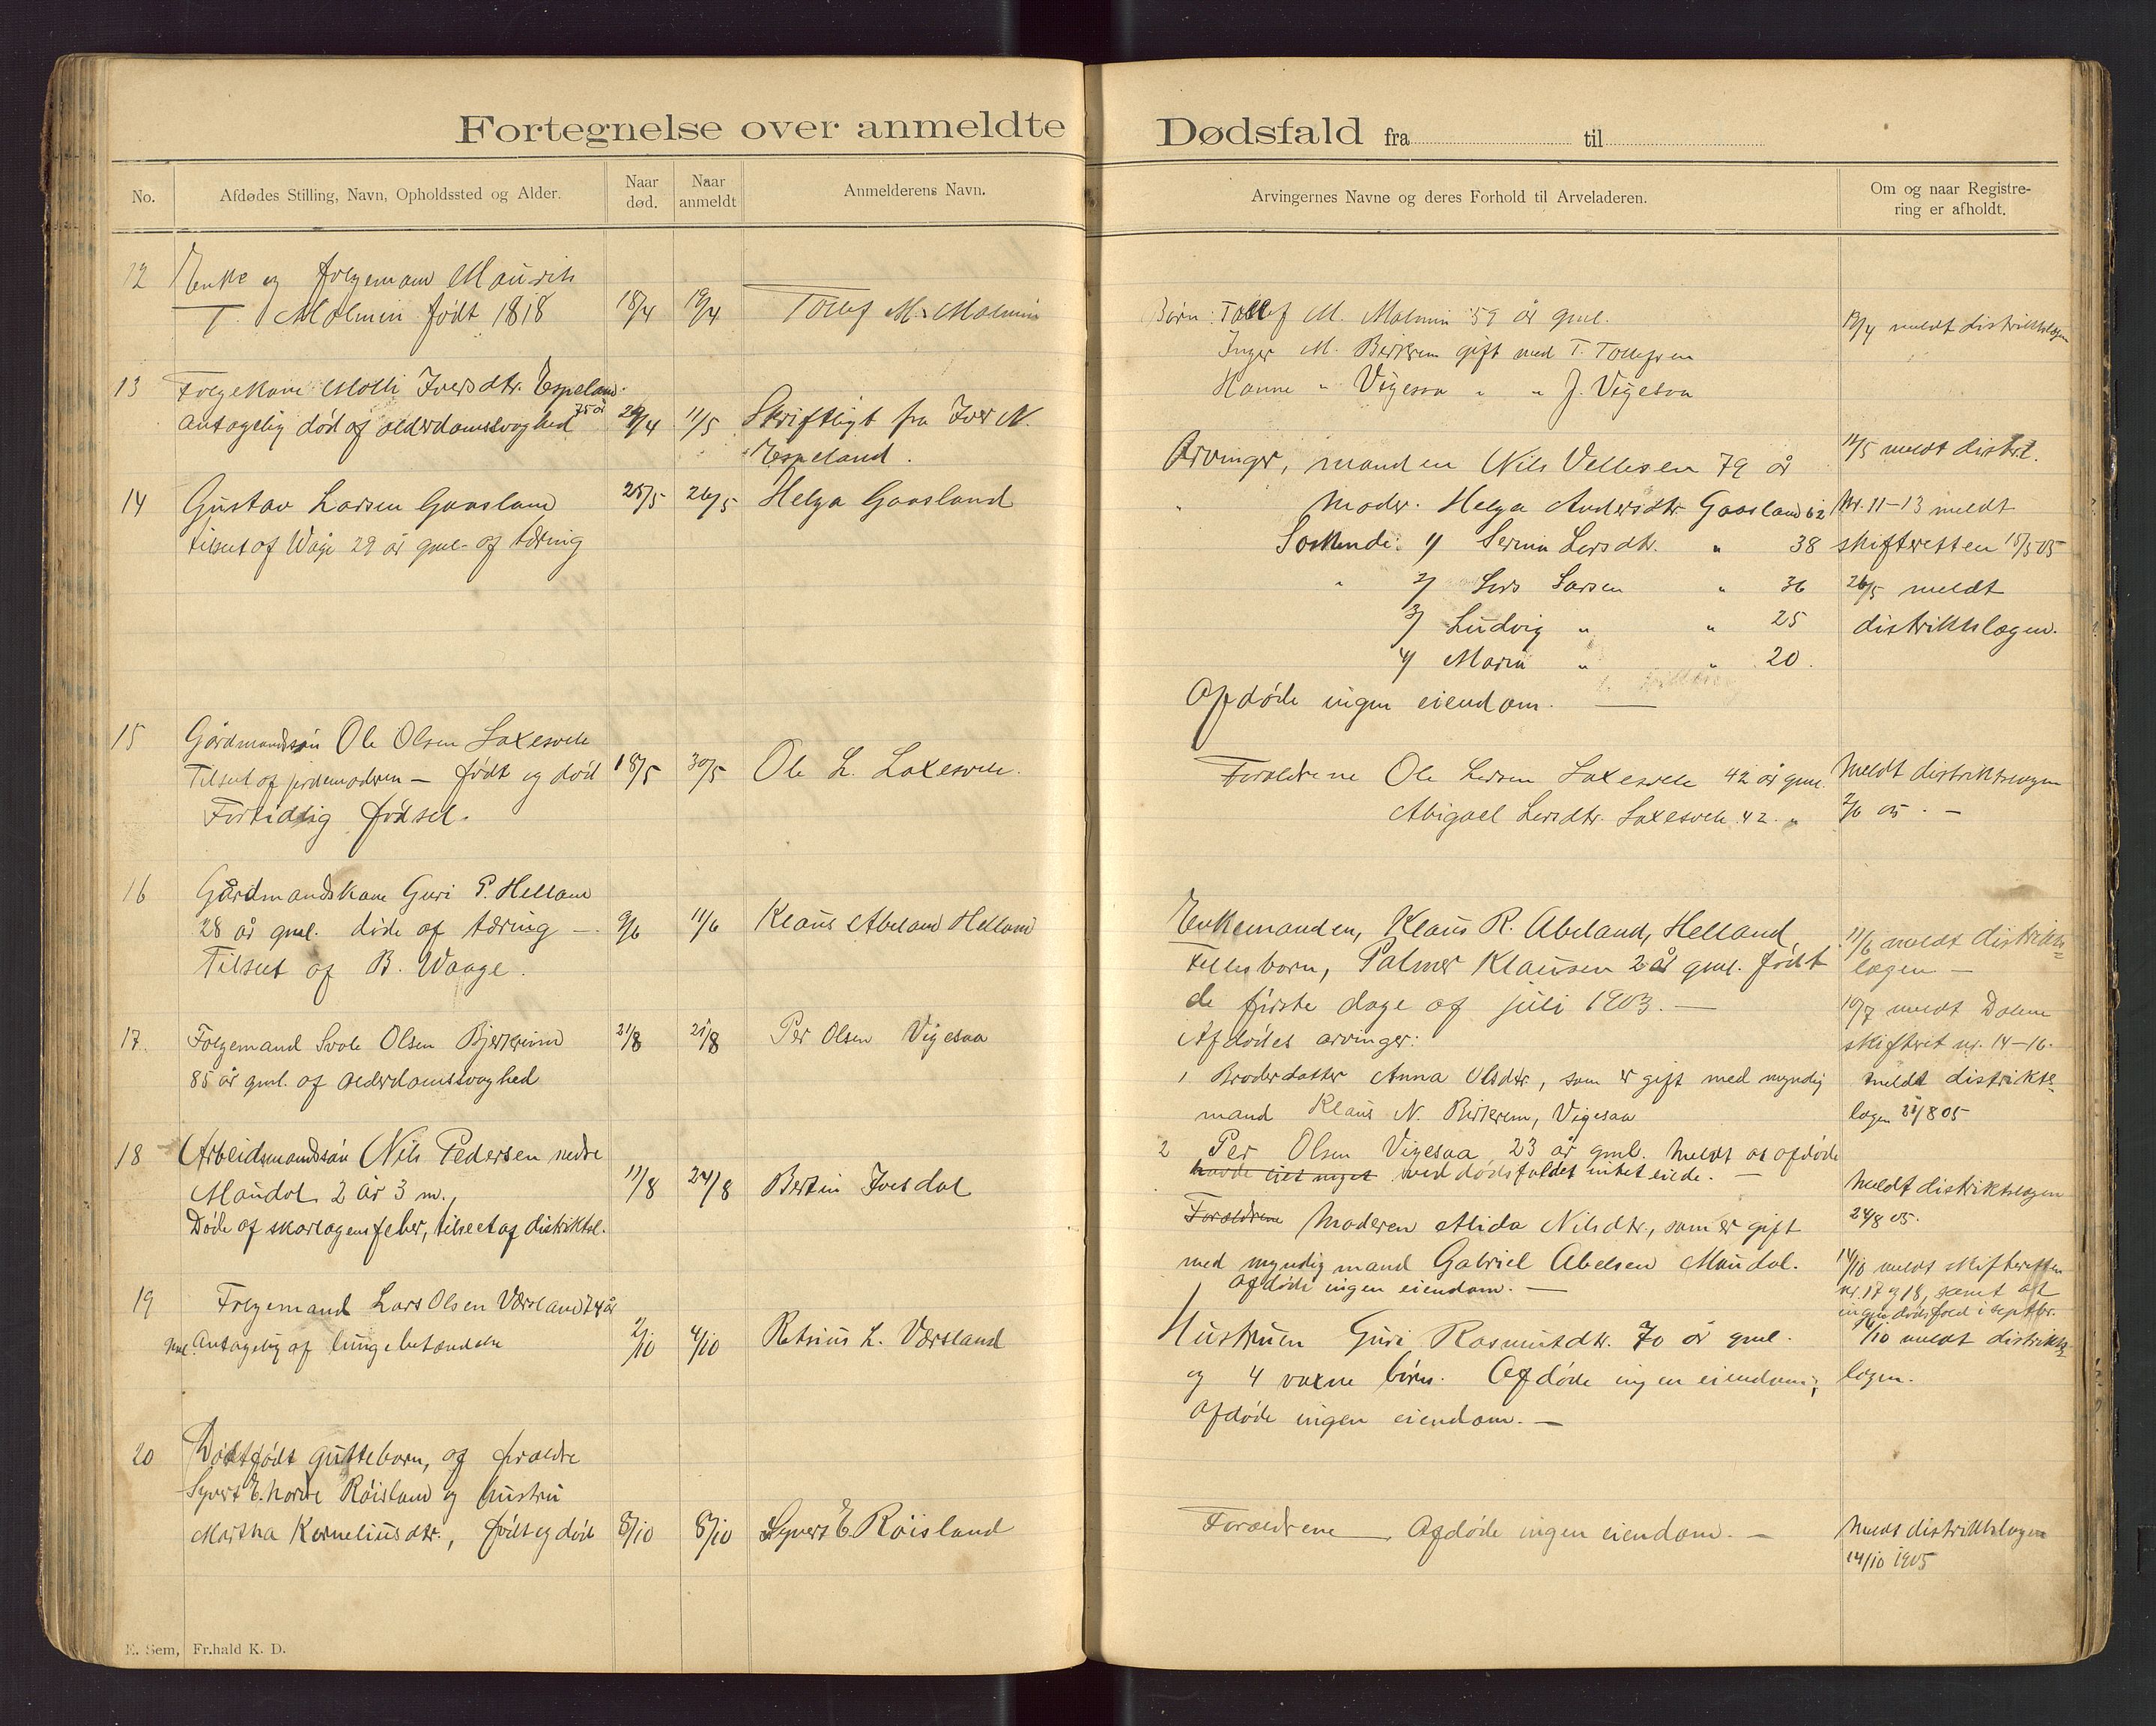 Fortegnelse over anmeldte Dødsfald fra til
No.
Afdødes Stilling, Navn, Opholdssted og Alder.
Naar død.
Naar anmeldt
Anmelderens Navn.
Arvingernes Navne og deres Forhold til Arveladeren.
Om og naar Registre-
ring er afholdt.
12 Enke og folgemand Mauritz
T. Malmin født 1818 18/4 19/4 Tollef M. Malmin
Børn: Tollef M. Malmin 59 år gml.
Inger M. Birkrem gift med T. Tollefsen
Hanne " Vigesaa " " J. Vigesaa
19/4 meldt distriktslægen
13 Folgekone Malli Iversdtr. Espeland
75 år
antagelig død af alderdomssvaghed 29/4 11/5 Skriftligt fra Iver N.
Espeland.
Arvinger, manden Nils Vellesen 79 år
11/5 meldt distrl.
14 Gustav Larsen Gaasland 25/5 26/5 Helga Gaasland
tilseet af Waage 29 år gml. af tæring
Moder. Helga Andersdtr. Gaasland 62
Søskende. 1/ Serina Larsdtr. " 38
" 2/ Lars Larsen " 36
3/ Ludvig " " 25
4/ Maria " " 20.
Afdøde ingen eiendom. —
Nr. 11-13 meldt
skifteretten 15/5 05
26/5 meldt
distriktslægen.
15 Gårdmandssøn Ole Olsen Laxesvele
Tilseet af jordemoderen — født og død 18/5 30/5 Ole L. Laxesvele.
Fortidlig fødsel.
Forældrene Ole Larsen Laxesvele 42 år gml.
Abigael Larsdtr. Laxesvele 42. "
Meldt distriktslægen
2/6 05. —
16 Gårdmandskone Guri P. Helland
28 år gml. døde af tæring — 9/6 11/6 Klaus Abeland Helland
Tilseet af B. Waage.
Enkemanden, Klaus R. Abeland, Helland
Fellesbarn, Palmer Klausen 2 år gml. født
de første dage af juli 1903. —
11/6 meldt distrikts=
lægen —
10/7 meldt Dalene
skifteret nr. 14-16.
17. Folgemand Svale Olsen Bjerkreim 21/8 21/8 Per Olsen Vigesaa
85 år gml. af alderdomssvaghed
Afdødes arvinger:
1 Broderdatter Anna Olsdtr, som er gift med myndig
mand Klaus N. Birkrem, Vigesaa
2 Per Olsen Vigesaa 23 år gml. Meldt at afdøde
havde eiet noget ved dødsfaldet intet eiede. —
meldt distrikts=
lægen 21/8 05
18 Arbeidsmandssøn Nils Pedersen nedre
Maudal 2 år 3 m., 11/8 24/8 Bertin Ivesdal
Døde af skarlagensfeber, tilseet af distriktsl.
Forældrene Moderen Alida Nilsdtr., som er gift
med myndig mand Gabriel Abelsen Maudal.
Afdøde ingen eiendom. —
Meldt distriktslægen
24/8 05.
14/10 meldt skifteretten
nr. 17 og 18, samt at
ingen dødsfald i septbr.
19 Folgemand Lars Olsen Værsland 74 år
gml. Antagelig af lungebetændelse 2/10 4/10 Retsius L. Værsland
Hustruen Guri Rasmusdtr. 70 år gml.
og 4 voxne børn. Afdøde ingen eiendom;
Afdøde ingen eiendom. —
4/10 meldt distrikts=
lægen.
20 Dødfødt guttebarn, af forældre
Syvert E. nordre Røisland og hustru
Martha Korneliusdtr., født og død 8/10 8/10 Syvert E. Røisland
Forældrene — Afdøde ingen eiendom. —
Meldt distriktslægen
14/10 1905
E. Sem, Fr.hald K. D.